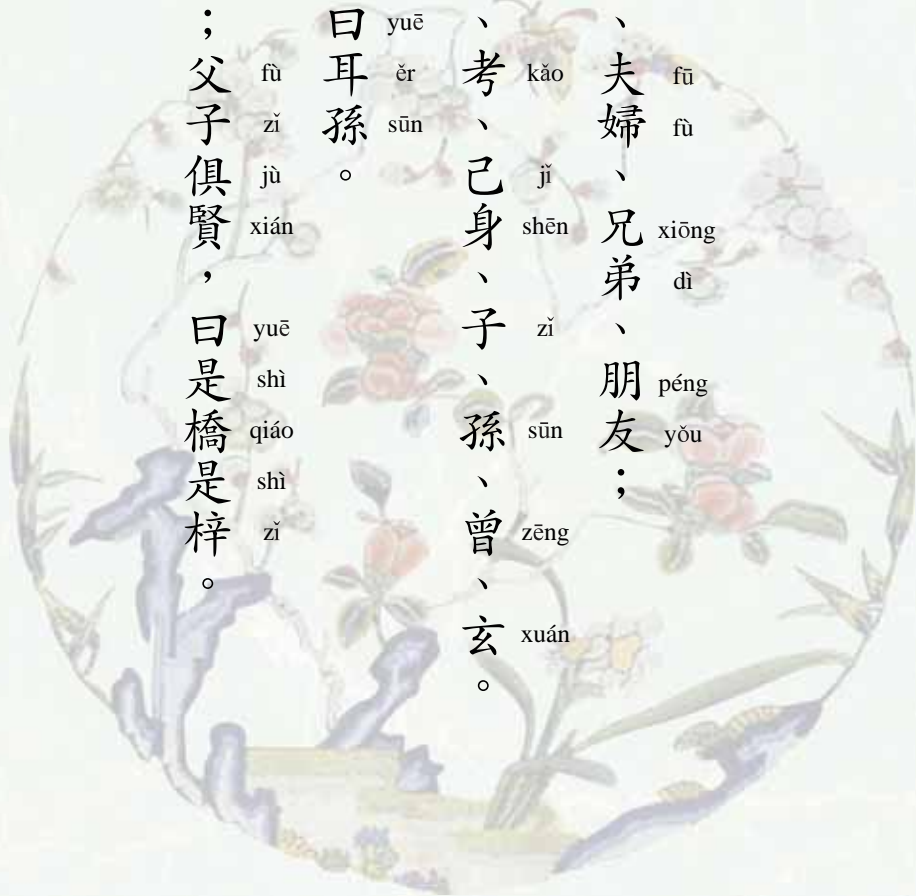 、夫婦、兄弟、朋友；
fū fù xiōng dì péng yǒu
、考、己身、子、孫、曾、玄。
kǎo jǐ shēn zǐ sūn zēng xuán
曰耳孫。
yuē ěr sūn
；父子俱賢，曰是橋是梓。
fù zǐ jù xián yuē shì qiáo shì zǐ